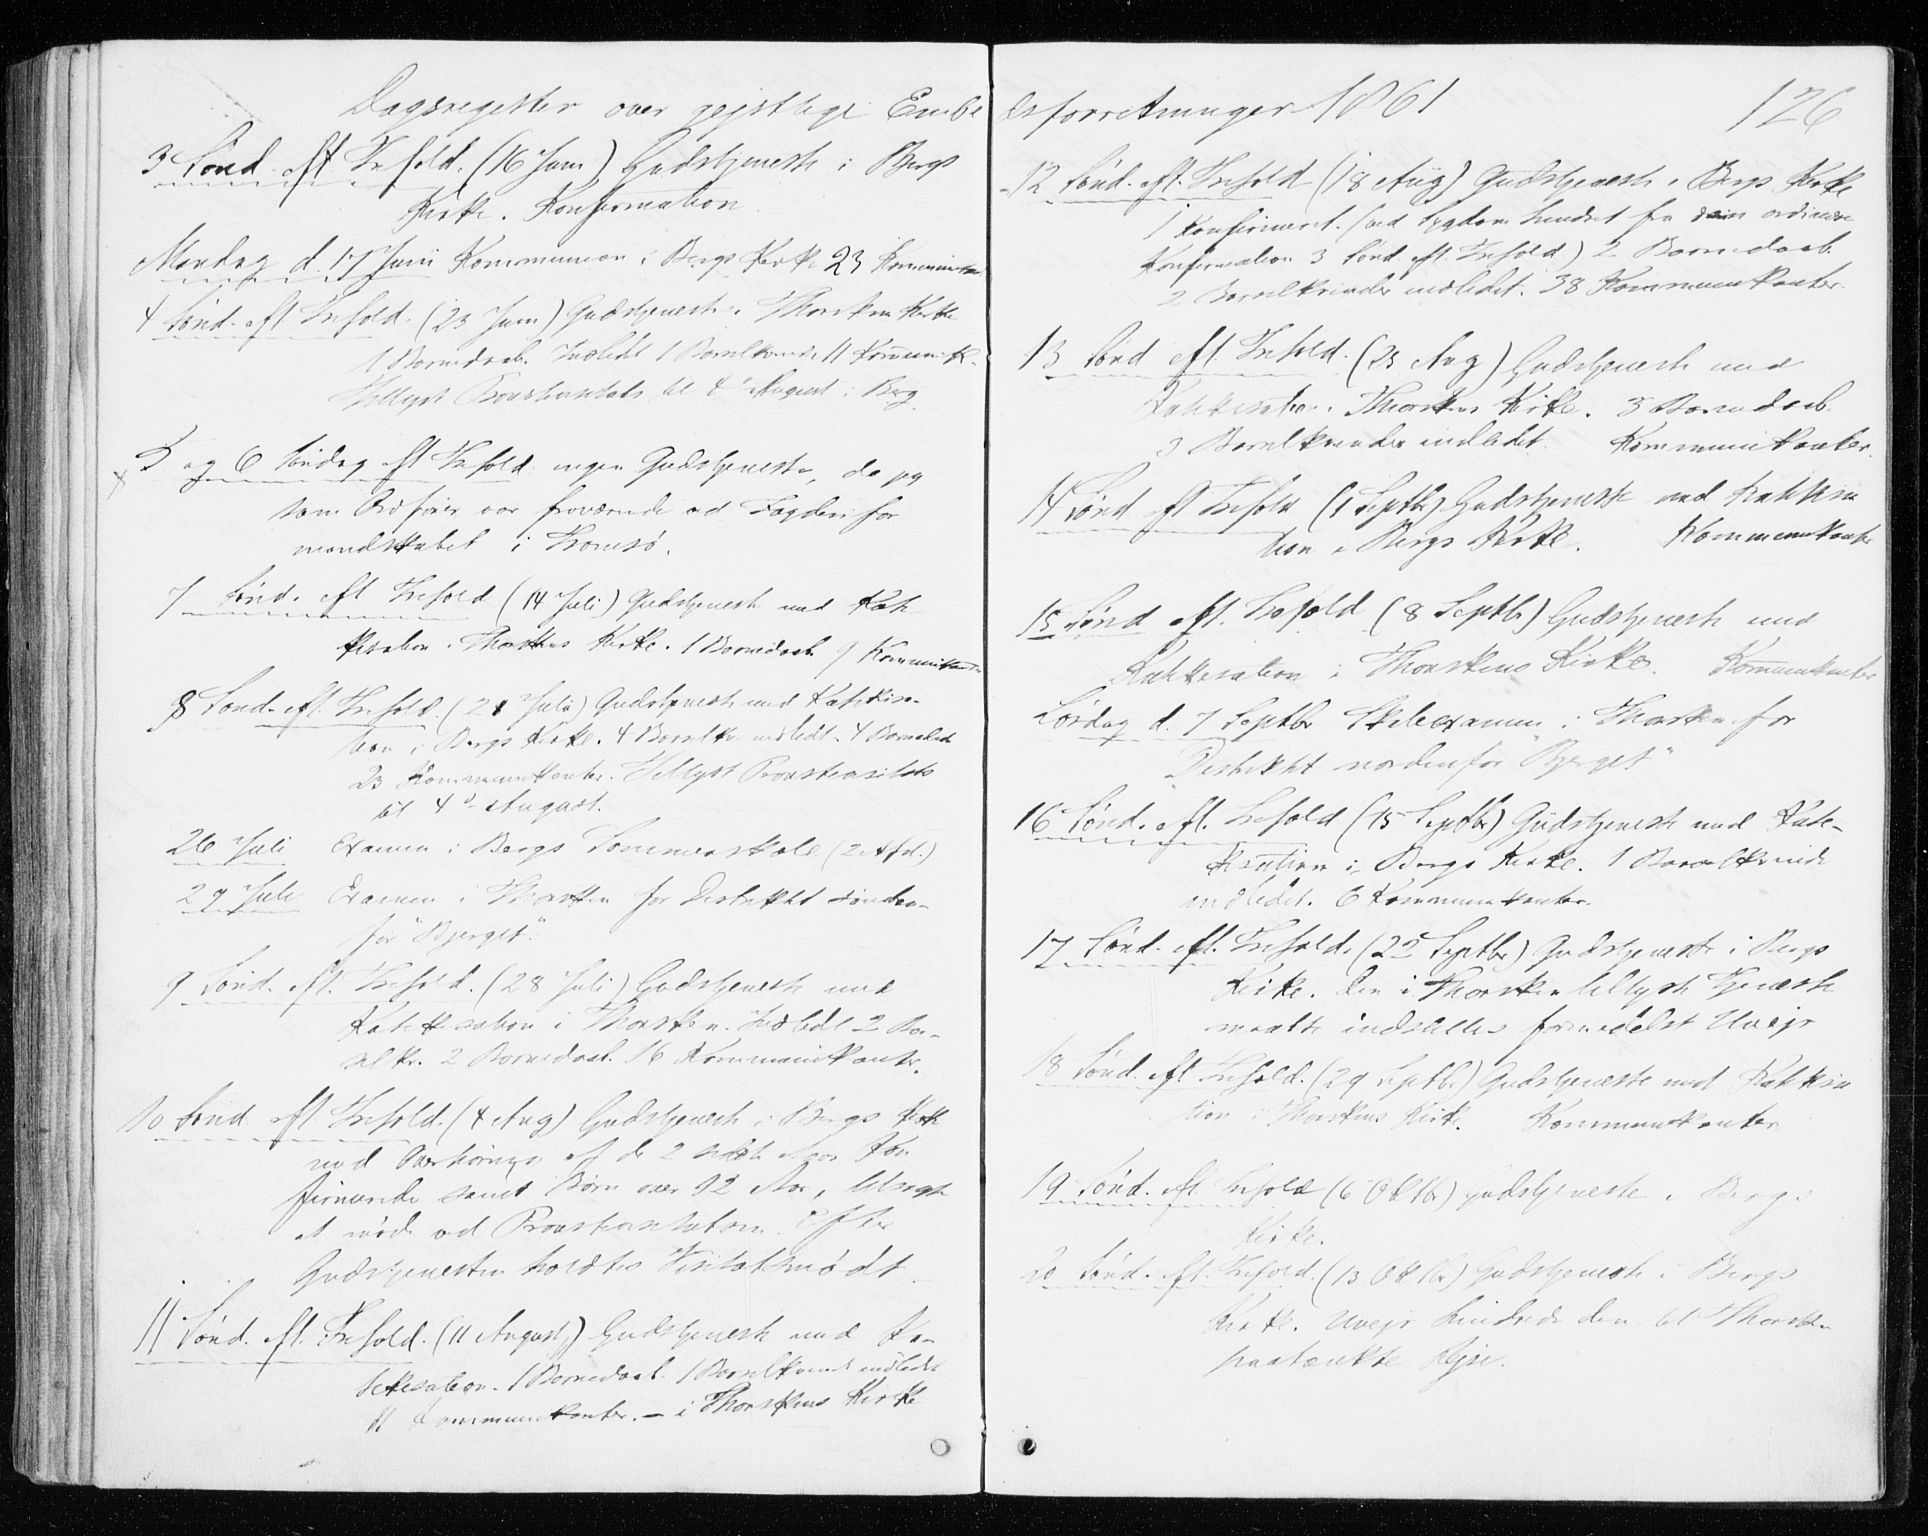 Dagsregister over geistlige Embedsforretninger 1861
126
3 Sönd. eft Trefold. (16 Juni) Gudstjeneste i Bergs
Kirke. Konfirmation
Mandag d. 17 Juni Kommunion i Bergs Kirke 23 Kommunikan
4 Sönd. eft. Trefold. (23 Juni) Gudstjeneste i Thorsken Kirke
1 Barnedaab. Indledet 1 Barselkvinde 11 Kommunik.
Tillyst Provstevisitats til 4de August i Berg
5 og 6 Söndag eft Trefold. ingen Gudstjeneste, da jeg
som Ordfører var fraværende ved Fogderifor
mandskabet i Tromsö.
7 Sönd. eft Trefold (14 Juli) Gudstjeneste med Kate
kisation i Thorskens Kirke. 1 Barnedaab 9 Kommunikanter
8 Sönd. eft. Trefold. (21 Juli) Gudstjeneste med Katekisa-
tion i Bergs Kirke. 4 Barselkv. indledt. 4 Barnedaab
23 Kommunikanter. Tillyst Provstevisitats
til 4de August.
26 Juli Examen i Bergs Sommerskole (2 Afd.)
29 Juli Examen i Thorsken for Distriktet sönden-
for "Bjerget".
9 Sönd. eft. Trefold. (28 Juli) Gudstjeneste med
Katekisation i Thorsken. Indledt 2 Bar-
selkv. 2 Barnedaab. 16 Kommunikanter.
10 Sönd eft. Trefold. (4 Aug) Gudstjeneste i Bergs Kirke
med Overhöring af de 2 sidste Aars Kon
firmerede samt Börn over 12 Aar, tilsagte
at möde ved Provstevisitatsen. Efter
Gudstjenesten holdtes Visitatsmödet.
11 Sönd. eft. Trefold. (11 August) Gudstjeneste med Ka-
tekisation. 1 Barnedaab. 1 Barselkvinde indledet
11 Kommunikanter. – i Thorskens Kirke
12 Sönd. eft. Trefold (18 Aug) Gudstjeneste i Bergs Kirke
1 Konfirmeret. (ved Sygdom hindret fra den ordinære
Konfirmation 3 Sönd eft. Trefold) 2 Barnedaab.
2 Barselkvinder indledet. 38 Kommunikanter.
13 Sönd eft. Trefold. (25 Aug) Gudstjeneste med
Katekisation i Thorskens Kirke. 3 Barnedaab.
3 Barselkvinder indledet. Kommunikanter.
14 Sönd eft Trefold (1 Septbr) Gudstjeneste med Katekisa
tion i Bergs Kirke. Kommunikanter
15 Sönd eft. Trefold (8 Septbr) Gudstjeneste med
Katekesation i Thorskens Kirke. Kommunikanter
Lördag d. 7 Septbr Skoleexamen i Thorsken for
Distriktet nordenfor "Bjerget"
16 Sönd. eft. Trefold (15 Septbr) Gudstjeneste med Kate-
kisation i Bergs Kirke. 1 Barselkvinde
indledet. 6 Kommunikanter.
17 Sönd. eft. Trefold. (22 Septbr) Gudstjeneste i Bergs
Kirke. Den i Thorsken tillyste Tjeneste
maatte indstilles formedelst Uvejr
18 Sönd. eft Trefold. (29 Septbr.) Gudstjeneste med Katekisa
tion i Thorskens Kirke. Kommunikanter
19 Sönd. eft Trefold (6 Oktbr) Gudstjeneste i Bergs
Kirke.
20 Sönd. eft. Trefold. (13 Oktbr) Gudstjeneste i Bergs
Kirke. Uvejr hindrede den til Thorsken
paatænkte Rejse.